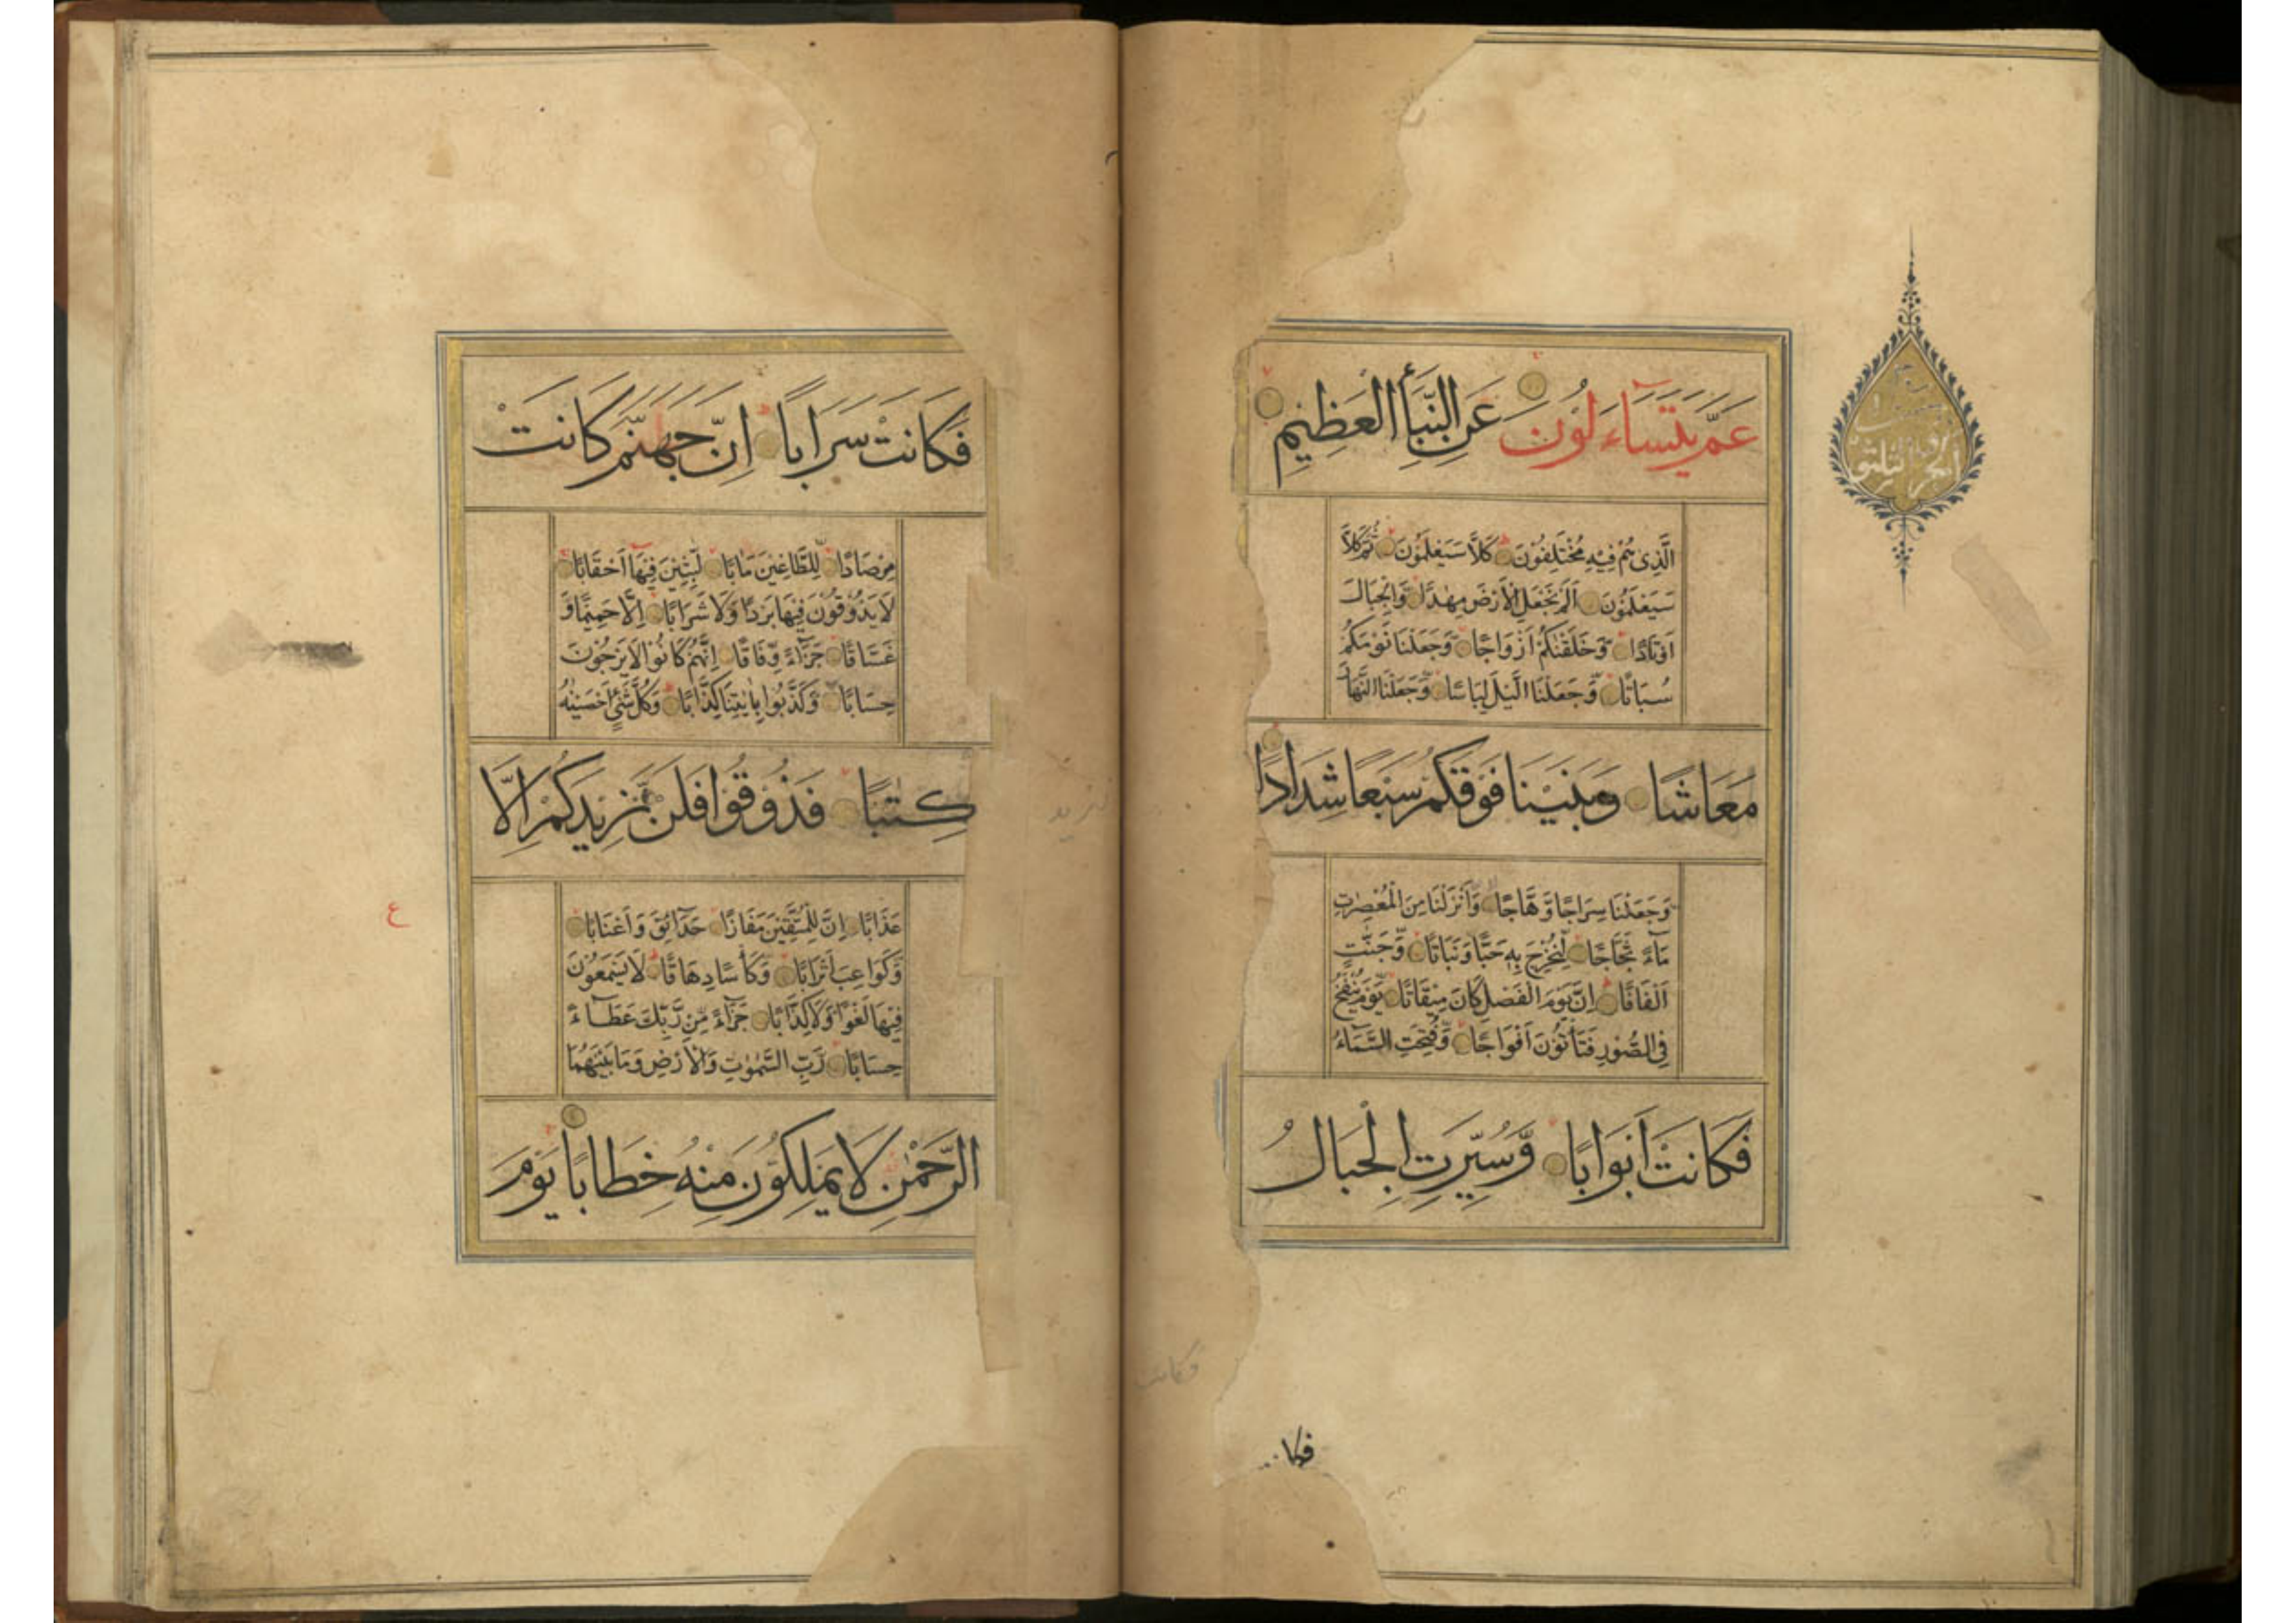 عَمَّ يَتَسَاءَلُونَ عَنِ النَّبَأِ الْعَظِيمِ
الَّذِى هُمْ فِيْهِ مُخْتَلِفُوْنَ كَلَّا سَيَعْلَمُوْنَ ثُمَّ كَلَّا
سَيَعْلَمُوْنَ اَلَمْ نَجْعَلِ الْاَرْضَ مِهٰدًا وَّالْجِبَالَ
اَوْتَادًا وَّخَلَقْنٰكُمْ اَزْوَاجًا وَّجَعَلْنَا نَوْمَكُمْ
سُبَاتًا وَّجَعَلْنَا الَّيْلَ لِبَاسًا وَّجَعَلْنَا النَّهَارَ
مَعَاشًا وَبَنَيْنَا فَوْقَكُمْ سَبْعًا شِدَادًا
وَجَعَلْنَا سِرَاجًا وَّهَّاجًا وَّاَنْزَلْنَا مِنَ الْمُعْصِرٰتِ
مَآءً ثَجَّاجًا لِّنُخْرِجَ بِهٖ حَبًّا وَنَبَاتًا وَّجَنّٰتٍ
اَلْفَافًا اِنَّ يَوْمَ الْفَصْلِ كَانَ مِيْقَاتًا يَّوْمَ يُنْفَخُ
فِى الصُّوْرِ فَتَأْتُوْنَ اَفْوَاجًا وَّفُتِحَتِ السَّمَآءُ
فَكَانَتْ اَبْوَابًا وَّسُيِّرَتِ الْجِبَالُ
فكا
فكانت
فَكَانَتْ سَرَابًا اِنَّ جَهَنَّمَ كَانَتْ
مِرْصَادًا لِّلطَّاغِيْنَ مَاٰبًا لّٰبِثِيْنَ فِيْهَا اَحْقَابًا
لَا يَذُوْقُوْنَ فِيْهَا بَرْدًا وَّلَا شَرَابًا اِلَّا حَمِيْمًا وَّ
غَسَّاقًا جَزَآءً وِّفَاقًا اِنَّهُمْ كَانُوْا لَا يَرْجُوْنَ
حِسَابًا وَّكَذَّبُوْا بِاٰيٰتِنَا كِذَّابًا وَكُلَّ شَىْءٍ اَحْصَيْنٰهُ
كِتٰبًا فَذُوْقُوْا فَلَنْ نَّزِيْدَكُمْ اِلَّا
عَذَابًا اِنَّ لِلْمُتَّقِيْنَ مَفَازًا حَدَآئِقَ وَاَعْنَابًا
وَّكَوَاعِبَ اَتْرَابًا وَّكَأْسًا دِهَاقًا لَا يَسْمَعُوْنَ
فِيْهَا لَغْوًا وَّلَا كِذَّابًا جَزَآءً مِّنْ رَّبِّكَ عَطَآءً
حِسَابًا رَبِّ السَّمٰوٰتِ وَالْاَرْضِ وَمَا بَيْنَهُمَا
الرَّحْمٰنِ لَا يَمْلِكُوْنَ مِنْهُ خِطَابًا يَوْمَ
ع